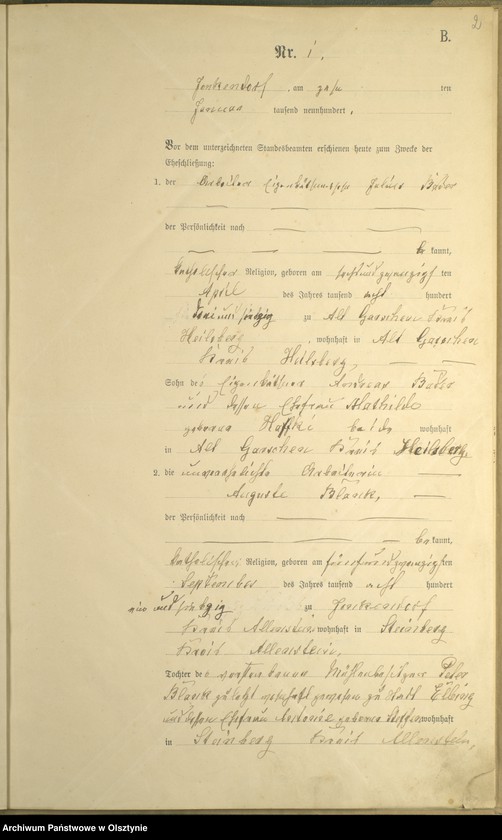 2
B.
Nr. 1.
Jonkendorf, am zehn ten
Januar tausend neunhundert
Vor dem unterzeichneten Standesbeamten erschienen heute zum Zwecke der
Eheschließung:
1. der Arbeiter Julius Bader
der Persönlichkeit nach
be kannt,
katholischer Religion, geboren am ten
April des Jahres tausend acht hundert
siebzig zu Alt Garschen Kreis
Heilsberg, wohnhaft in Alt Garschen
Kreis Heilsberg,
Sohn des Eigenthümers Andreas Bader
und dessen Ehefrau Mathilde
geborene beide wohnhaft
in Alt Garschen Kreis Heilsberg,
2. die unverehelichte Arbeiterin
Auguste Blank,
der Persönlichkeit nach
be kannt,
katholischer Religion, geboren am fünfundzwanzigsten
September des Jahres tausend acht hundert
und siebzig zu Jonkendorf
Kreis Allenstein wohnhaft in Steinberg
Kreis Allenstein,
Tochter des verstorbenen Mühlenbesitzers Peter
Blank zuletzt wohnhaft gewesen zu Stadt Elbing
und dessen Ehefrau geborene wohnhaft
in Steinberg Kreis Allenstein,
Archiwum Państwowe w Olsztynie